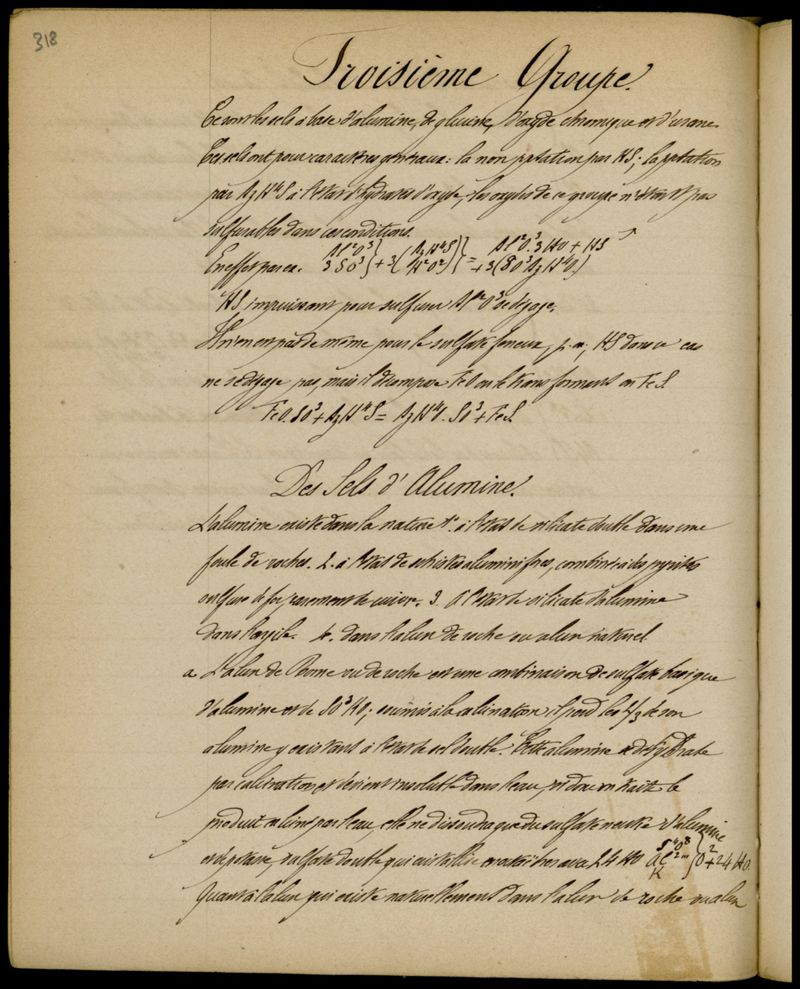 318
Troisième Groupe.
Ce sont les sels à base d'alumine, de glucine, d'oxyde chromique et d'urane.
Ces sels ont pour caractères généraux: la non pptation par HS; la pptation
par AzH⁴S à l'état d'hydrates d'oxyde, les oxydes de ce groupe n'étant pas
sulfurables dans ces conditions.
En effet par ex. Al²O³ 3SO³} + 3(AzH⁴S H²O²)} = Al²O³.3HO + HS + 3(SO³AzH⁴O)
HS, impuissant pour sulfurer Al²O³ se dégage.
Il n'en est pas de même pour le sulfate ferreux, p. ex, HS dans ce cas
ne se dégage pas, mais il décompose FeO en le transformant en FeS.
FeO.SO³ + AzH⁴S = AzH⁴O.SO³ + FeS.
Des Sels d'Alumine.
L'alumine existe dans la nature 1.° à l'état de silicate double dans une
foule de roches. 2. à l'état de schistes aluminifères, combinés à des pyrites
ou sulfure de fer rarement de cuivre. 3. à l'état de silicate d'alumine
dans l'argile. 4. dans l'alun de roche ou alun naturel
a L'alun de Rome ou de roche est une combinaison de sulfate basique
d'alumine et de SO³HO; soumis à la calcination il perd les 2/3 de son
alumine y existant à l'état de sel double. Cette alumine se deshydrate
par calcination et devient insoluble dans l'eau, si donc on traite le
produit calciné par l'eau, elle ne dissoudra que du sulfate neutre d'alumine
et de potasse, sulfate double qui cristallise en octaèdres avec 24 HO S⁴O⁸ Al²ᵐ K } O² + 24 HO.
Quant à l'alun qui existe naturellement dans l'alun de roche ou alun